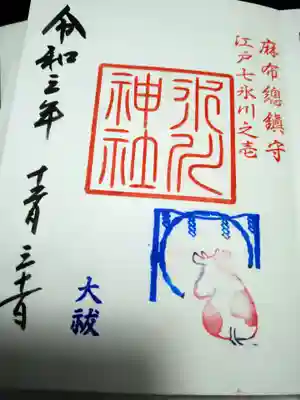 麻布總鎮守
江戸七氷川之壱
氷川
神社
大祓
令和三年 十二月三十一日